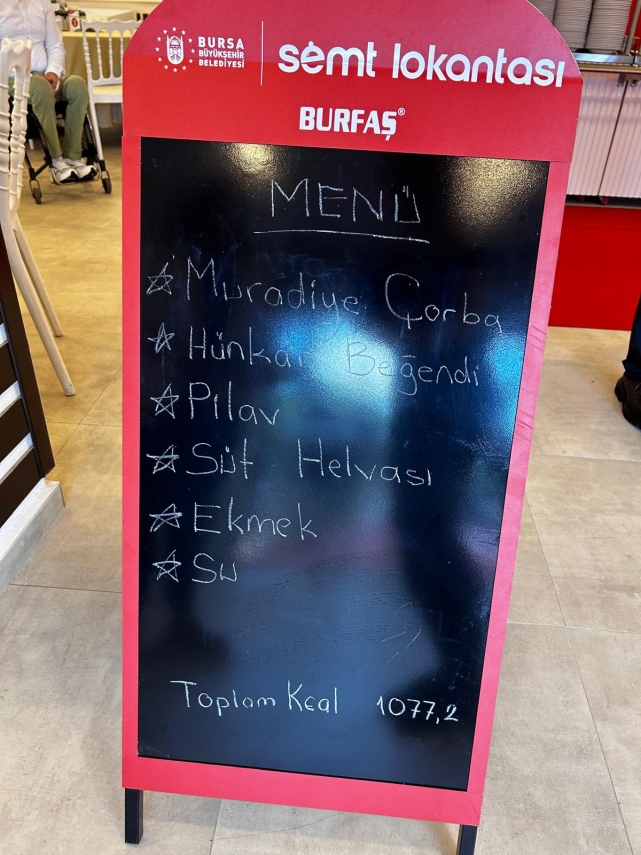 BURSA
BÜYÜKŞEHİR
BELEDİYESİ
semt lokantası
BURFAŞ®
MENÜ
Muradiye Çorba
Hünkar Beğendi
Pilav
Süt Helvası
Ekmek
Su
Toplam Kcal 1077,2